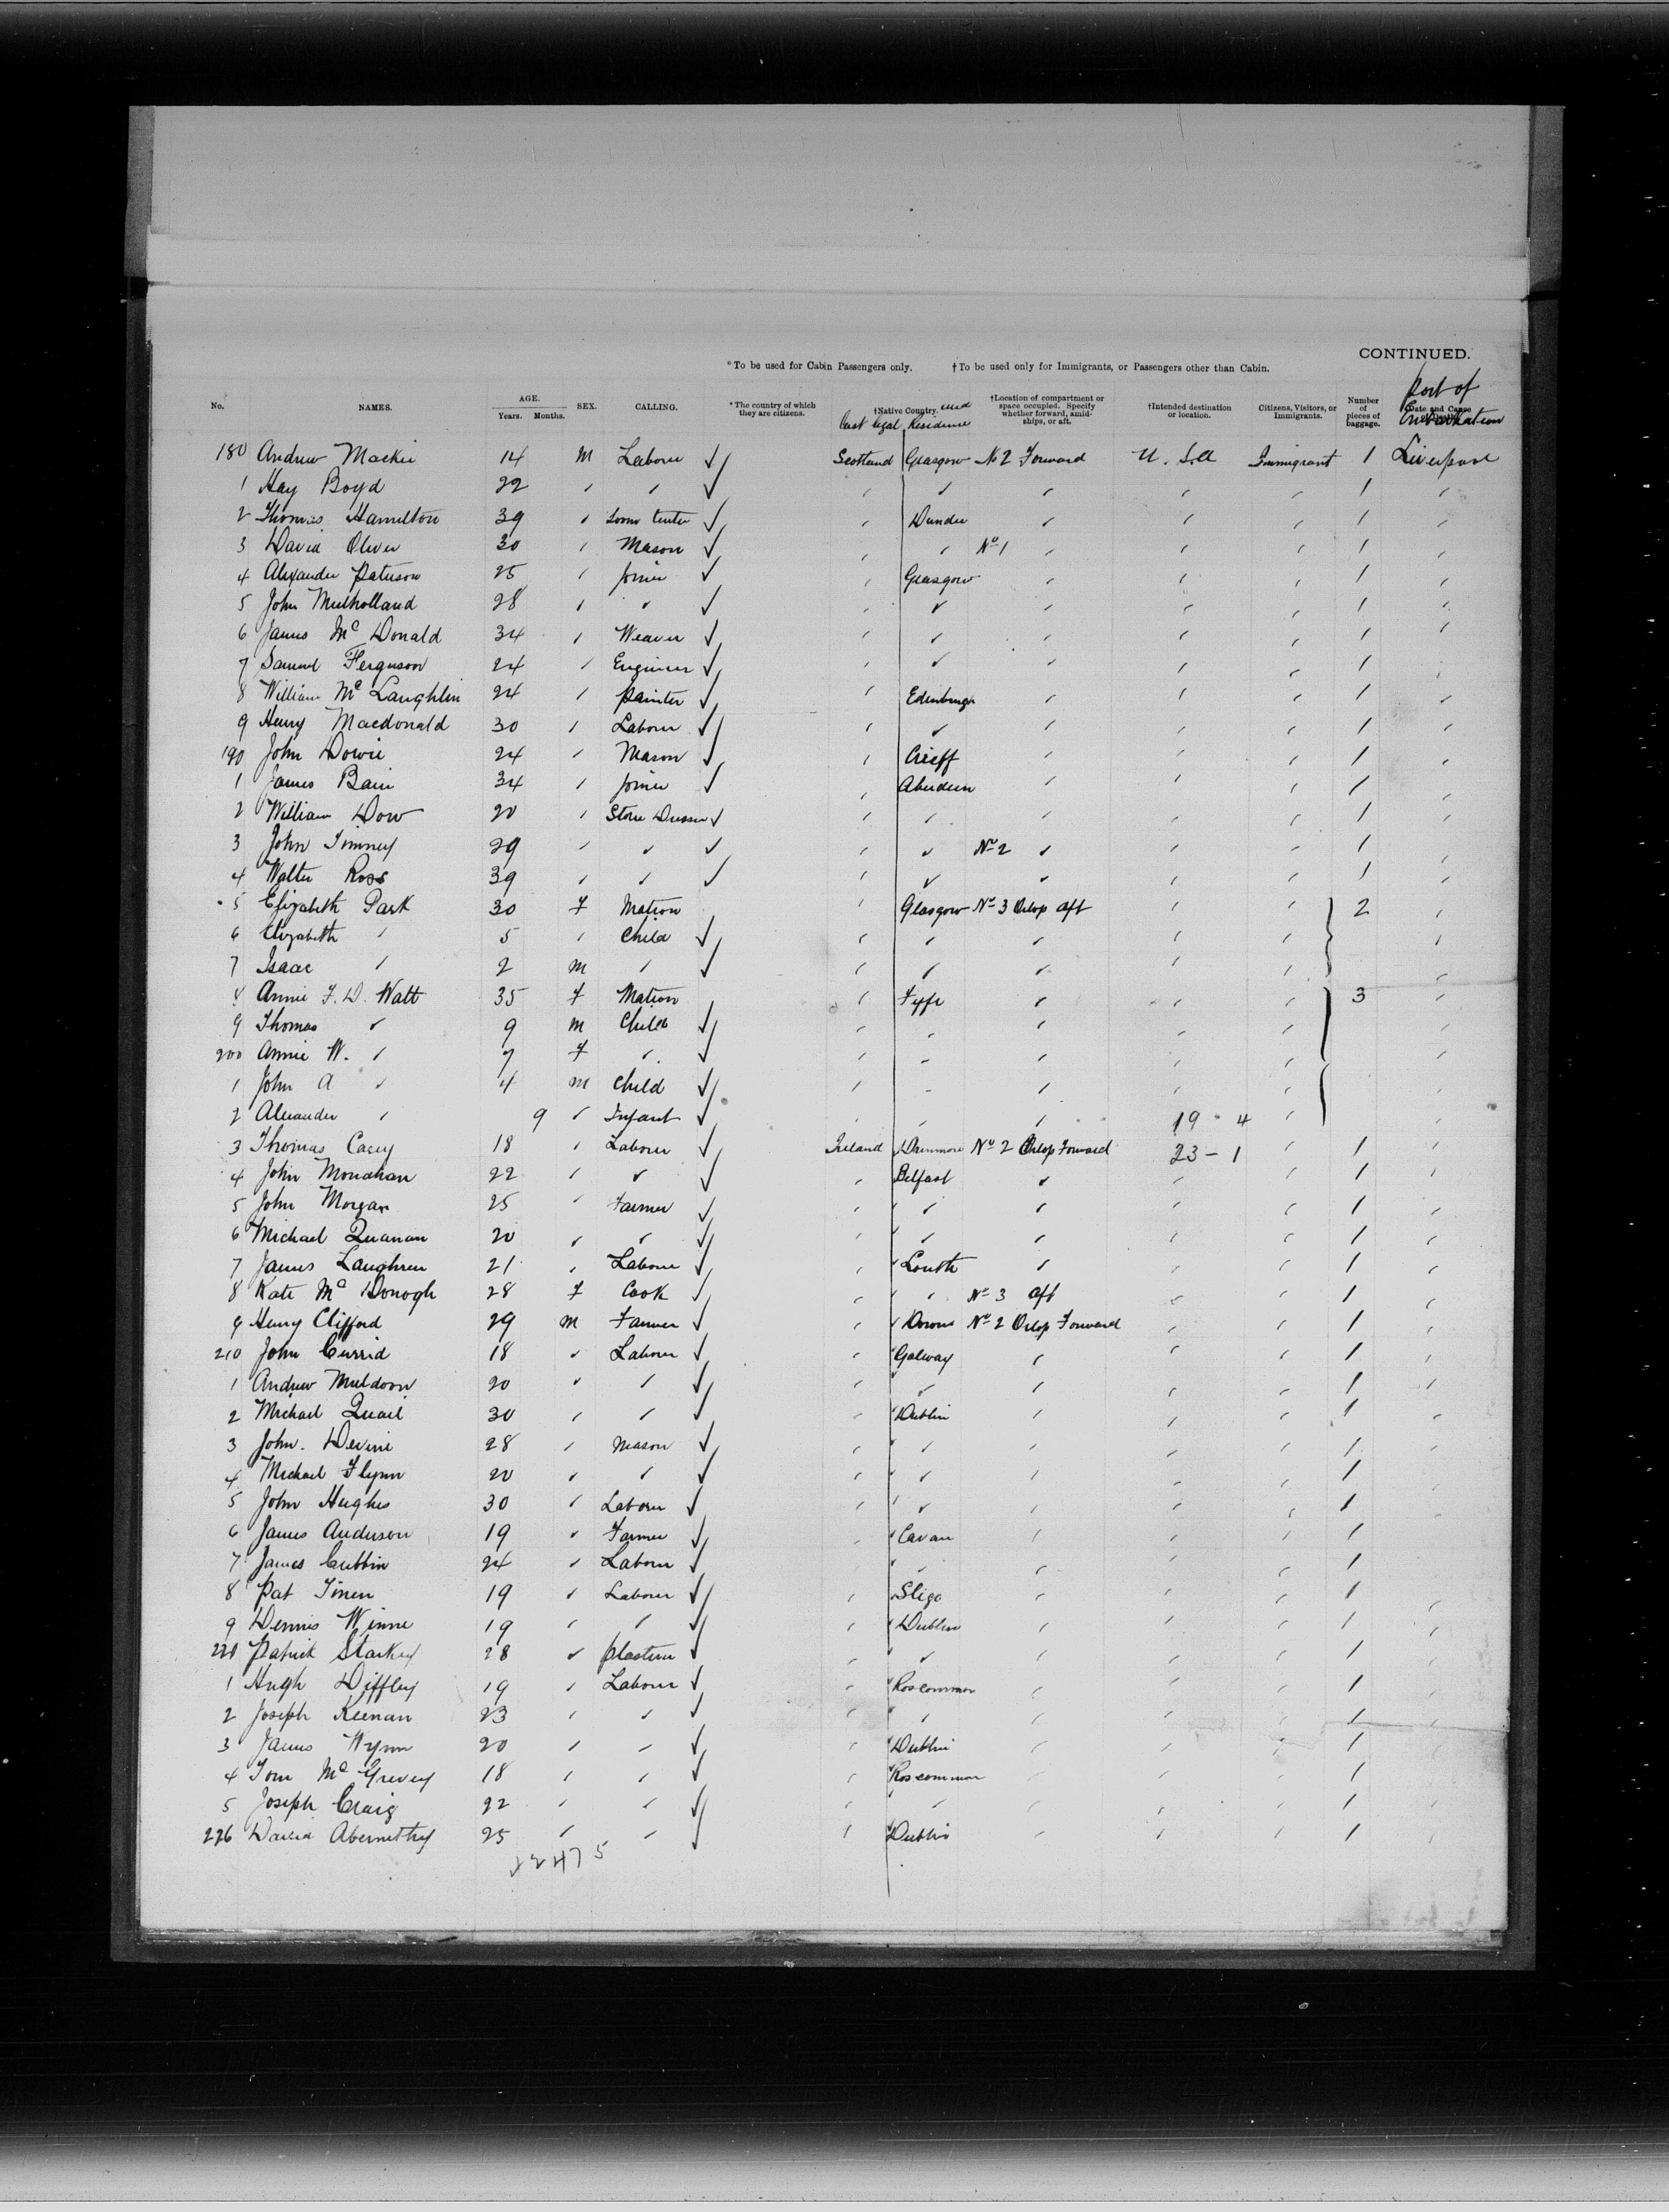 CONTINUED.
*To be used for Cabin Passengers only. †To be used only for Immigrants, or Passengers other than Cabin.
No. NAMES. AGE. Years. Months. SEX. CALLING. *The country of which they are citizens. †Native Country. and last legal Residence †Location of compartment or space occupied. Specify whether forward, amid-ships, or aft. †Intended destination or location. Citizens, Visitors, or Immigrants. Number of pieces of baggage. Date and Cause Port of Embarkation
180 Andrew Mackie 14 M Laborer ✓ Scotland Glasgow No 2 Forward U.S.A Immigrant 1 Liverpool
1 Hay Boyd 22 " " ✓ " " " " " 1 "
2 Thomas Hamilton 39 " Loom tenter ✓ " Dundee " " " 1 "
3 David Oliver 30 " Mason ✓ " " No 1 " " " 1 "
4 Alexander Paterson 25 " Joiner ✓ " Glasgow " " " 1 "
5 John Mulholland 28 " " ✓ " " " " " 1 "
6 James Mc Donald 34 " Weaver ✓ " " " " " 1 "
7 Samuel Ferguson 24 " Engineer ✓ " " " " " 1 "
8 William Mc Laughlin 24 " Painter ✓ " Edinburgh " " " 1 "
9 Henry Macdonald 30 " Laborer ✓ " " " " " 1 "
190 John Dowie 24 " Mason ✓ " Crieff " " " 1 "
1 James Bain 34 " Joiner ✓ " Aberdeen " " " 1 "
2 William Dow 20 " Stone Dresser ✓ " " " " " 1 "
3 John Timney 29 " " ✓ " " No 2 " " " 1 "
4 Walter Ross 39 " " ✓ " " " " " 1 "
5 Elizabeth Park 30 F Matron " Glasgow No 3 Orlop Aft " " 2 "
6 Elizabeth " 5 " Child ✓ " " " " " "
7 Isaac " 2 M " ✓ " " " " " "
8 Annie F. D. Watt 35 F Matron " Fyfe " " " 3 "
9 Thomas " 9 M Child ✓ " " " " " "
200 Annie W. " 7 F " ✓ " " " " " "
1 John A " 4 M Child ✓ " " " " " "
2 Alexander " 9 " Infant ✓ " " " 19 - 4 " "
3 Thomas Casey 18 " Laborer ✓ Ireland No 2 Orlop Forward 23 - 1 " 1 "
4 John Monahan 22 " " ✓ " Belfast " " " 1 "
5 John Morgan 25 " Farmer ✓ " " " " " 1 "
6 Michael Quanan 20 " " ✓ " " " " " 1 "
7 James Laughren 21 " Laborer ✓ " Louth " " " 1 "
8 Kate Mc Donogh 28 F Cook ✓ " " No 3 Aft " " 1 "
9 Henry Clifford 29 M Farmer ✓ " Down No 2 Orlop Forward " " 1 "
210 John Currid 18 " Laborer ✓ " Galway " " " 1 "
1 Andrew Muldoon 20 " " ✓ " " " " " 1 "
2 Michael Quail 30 " " ✓ " Dublin " " " 1 "
3 John. Devine 28 " Mason ✓ " " " " " 1 "
4 Michael Flynn 20 " " ✓ " " " " " 1 "
5 John Hughes 30 " Laborer ✓ " " " " " 1 "
6 James Anderson 19 " Farmer ✓ " Cavan " " " 1 "
7 James Cubbin 24 " Laborer ✓ " " " " " 1 "
8 Pat Tinen 19 " Laborer ✓ " Sligo " " " 1 "
9 Dennis Winne 19 " " ✓ " Dublin " " " 1 "
220 Patrick Starkey 28 " Plasterer ✓ " " " " " 1 "
1 Hugh Diffley 19 " Laborer ✓ " Roscommon " " " 1 "
2 Joseph Keenan 23 " " ✓ " " " " " 1 "
3 James Wynn 20 " " ✓ " Dublin " " " 1 "
4 Tom Mc Grevey 18 " " ✓ " Roscommon " " " 1 "
5 Joseph Craig 22 " " ✓ " " " " " 1 "
226 David Abernethy 25 " " ✓ " Dublin " " " 1 "